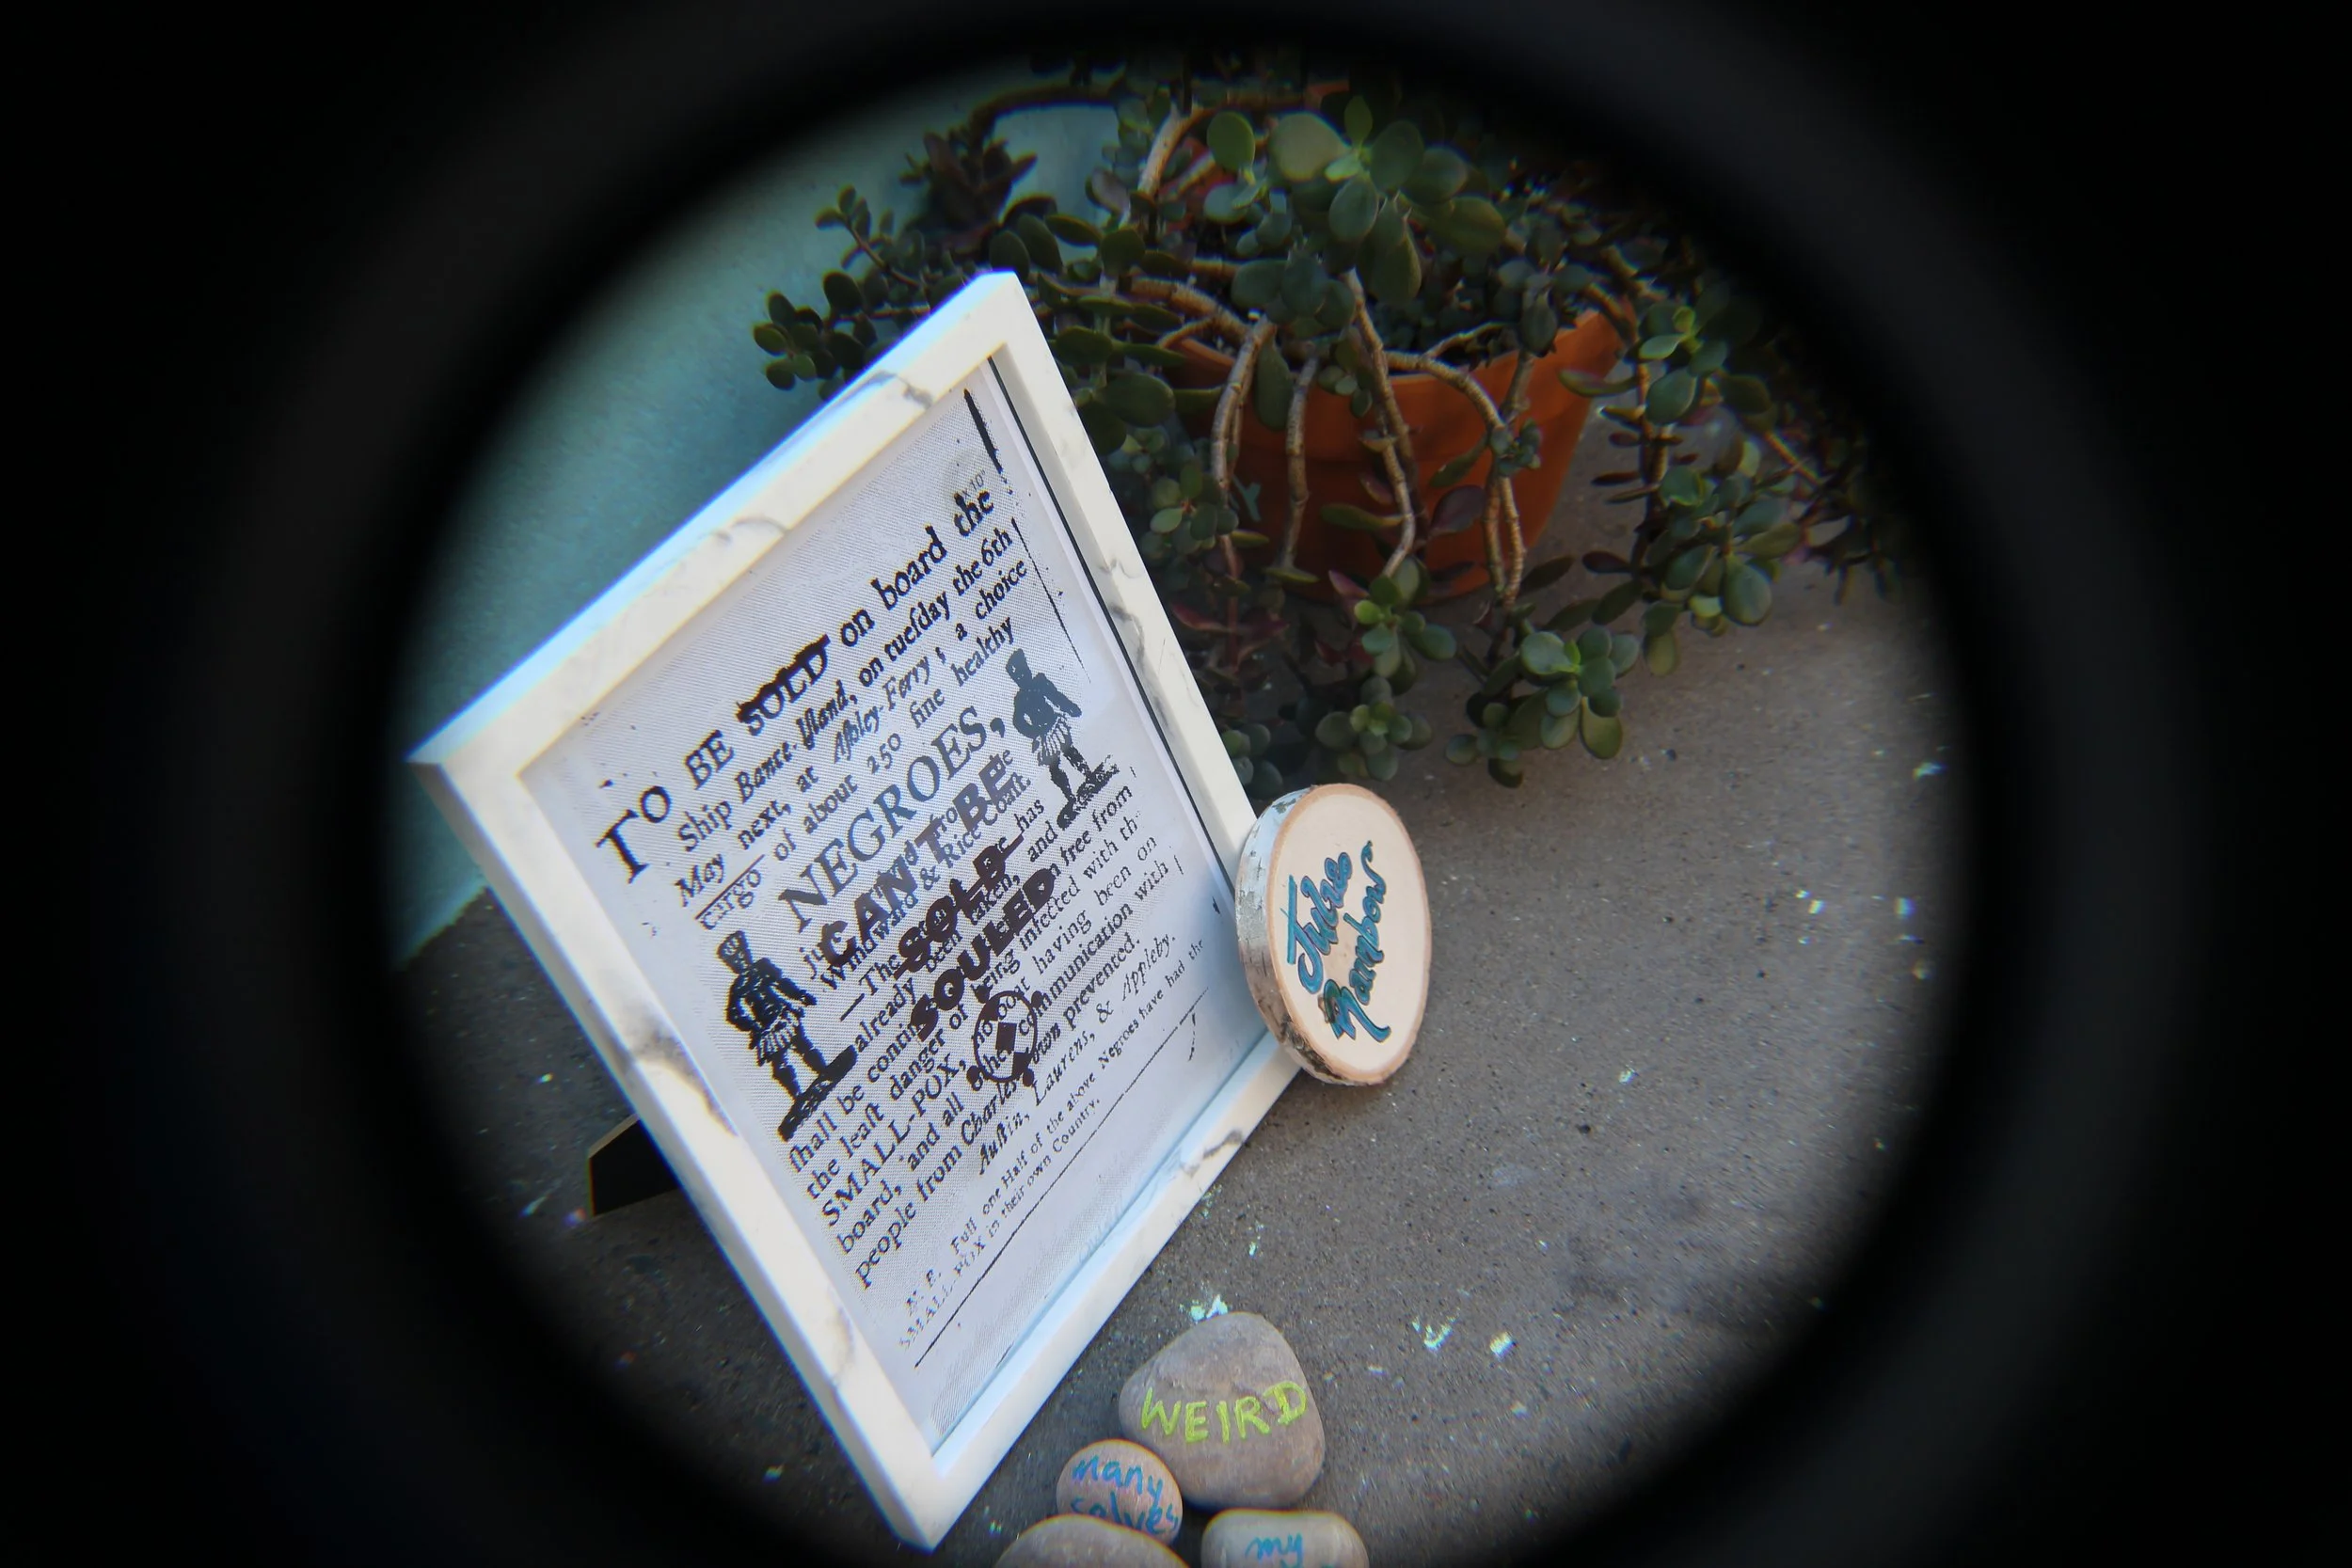 TO BE SOLD on board the
Ship Bance-Yland, on tuesday the 6th
May next, at Ashley-Ferry; a choice
cargo of about 250 fine healthy
NEGROES,
CAN'T BE
Windward & Rice Coast.
SOLD
—The has
already been taken, and
SOULED
shall be free from
the least danger of being infected with
SMALL-POX, no boat having been on
board, and all other communication with
people from Charles Town prevented.
Austin, Laurens, & Appleby.
N. B. Full one Half of the above Negroes have had the
SMALL-POX in their own Country.
Jules
Rambow
WEIRD
many
solves
my